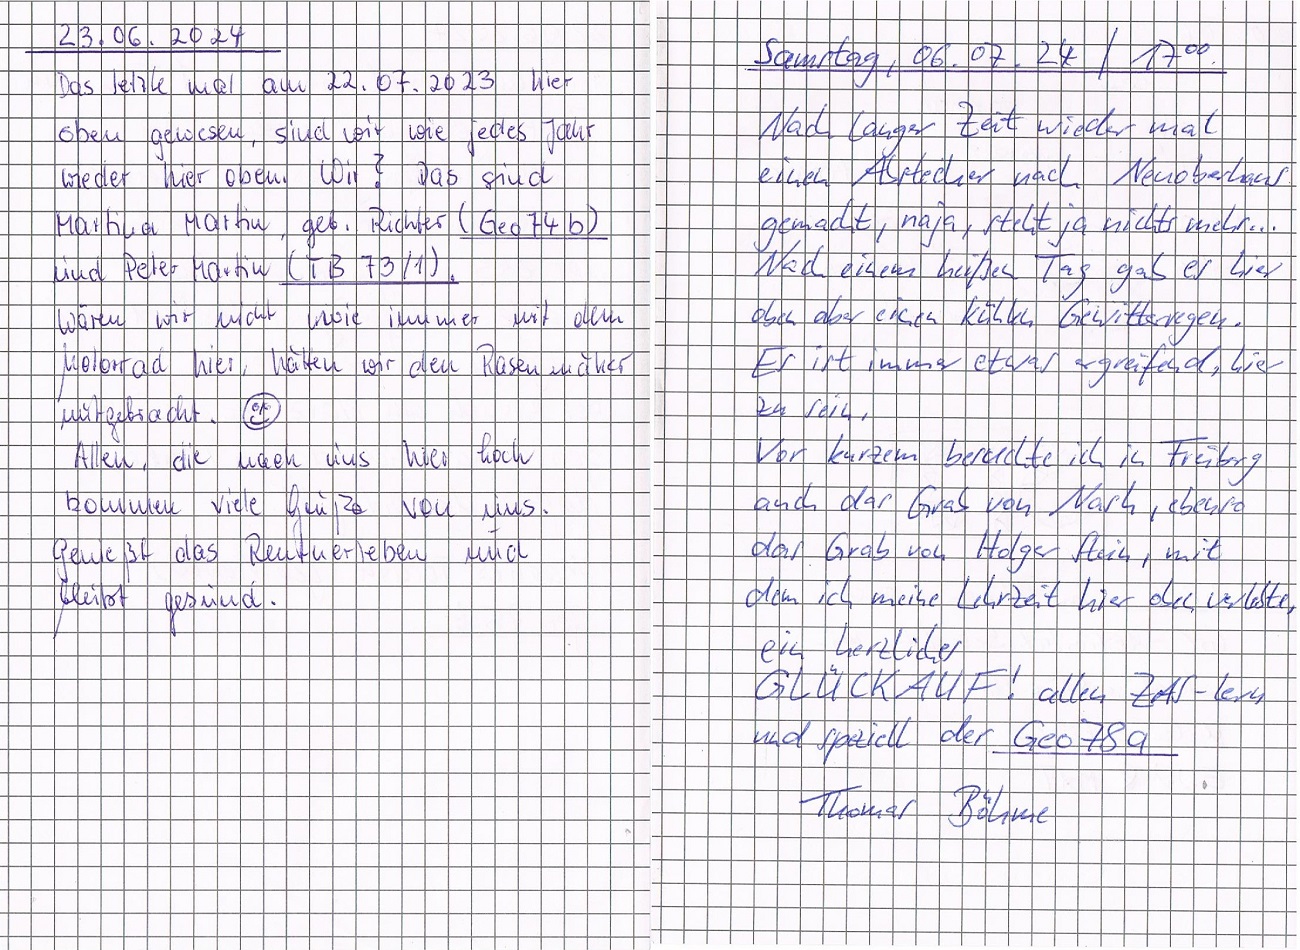 23.06.2024
Das letzte mal am 22.07.2023 hier
oben gewesen, sind wir wie jedes Jahr
wieder hier oben. Wir? Das sind
Martina Martin, geb. Richter (Geo74b)
und Peter Martin (TB 73/1).
Wären wir nicht wie immer mit dem
Motorrad hier, hätten wir den Rasenmäher
mitgebracht.
Allen, die nach uns hier hoch
kommen viele Grüße von uns.
Genießt das Rentnerleben und
bleibt gesund.
Samstag, 06.07.24 / 17 00.
Nach langer Zeit wieder mal
einen Abstecher nach Neuoberhaus
gemacht, naja, steht ja nichts mehr...
Nach einem heißen Tag gab es hier
oben aber einen kühlen Gewitterregen.
Es ist immer etwas ergreifend, hier
zu sein.
Vor kurzem besuchte ich in Freiberg
auch das Grab von , ebenso
das Grab von Holger Stein, mit
dem ich meine Lehrzeit hier oben verlebte,
ein herzliches
GLÜCKAUF! allen ZAS-lern
und speziell der Geo78a
Thomas Böhme